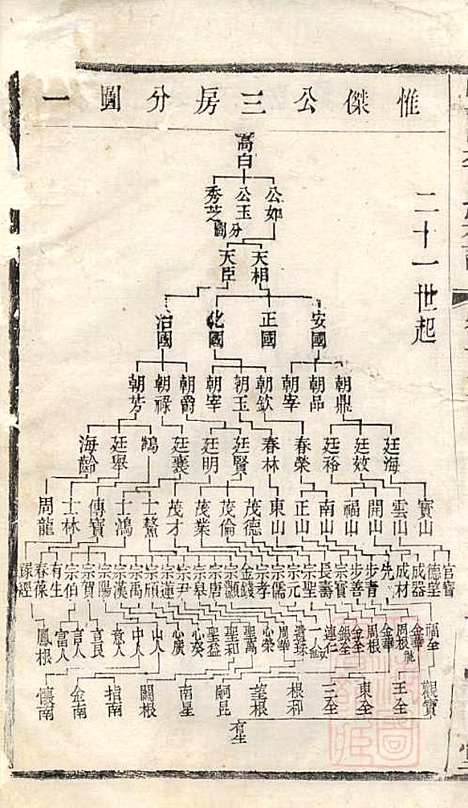 惟傑公三房分圖一
二十一世起
高白
公如 公玉 秀芝
分圖
天相 天臣
安國 正國 化國 治國
朝鼎 朝品 朝宰 朝欽 朝玉 朝宰 朝爵 朝祿 朝芳
廷海 廷效 廷裕 春榮 春林 廷賢 廷明 廷襄 鵠 廷舉 海齡
寶山 雲山 開山 福山 南山 正山 東山 茂德 茂倫 茂業 茂才 士鰲 士鴻 傳寶 士林 周龍
官寶 德堂 成器 成材 先 步青 步善 宗寶 長壽 宗聖 宗元 宗儒 宗孝 金錢 宗灝 宗唐 宗皋 宗尹 宗蓮 宗頎 宗禹 宗漢 宗陽 宗寶 宗伯 有生 春保 祿經
福全 金華 周根 金華 周根 金全 銀全 連仁 周華 心榮 聖萬 聖和 聖益 心葵 心廣 山人 中人 意人 言良 言人 富人 鳳根
觀寶 王全 東全 三全 根和 護根 嗣昆 南星 關根 指南 金南 懷南
有生